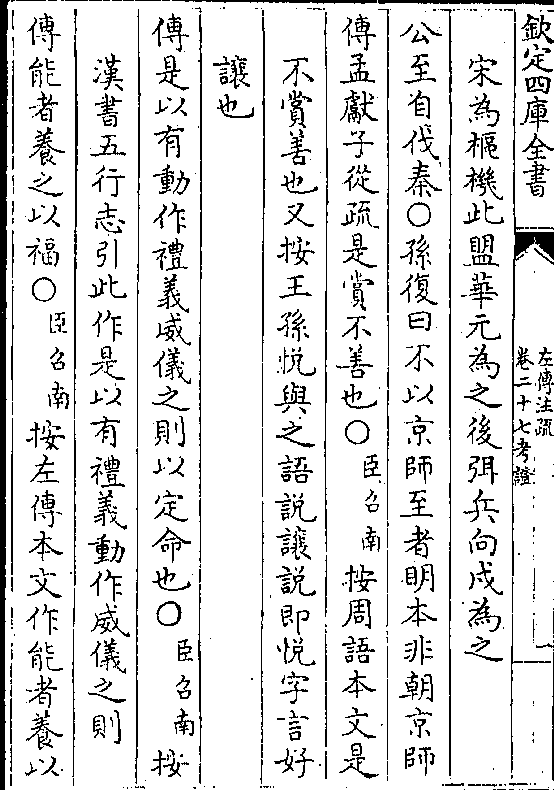 欽定四庫全書
左傳注疏
卷二十七考證
一
宋為樞機此盟華元為之後弭兵向戌為之
公至自伐秦○孫復曰不以京師至者明本非朝京師
傳孟獻子從疏是賞不善也○臣召南按周語本文是
不賞善也又按王孫悅與之語說讓說即悅字言好
讓也
傳是以有動作禮義威儀之則以定命也○臣召南按
漢書五行志引此作是以有禮義動作威儀之則
傳能者養之以福○臣召南按左傳本文作能者養以